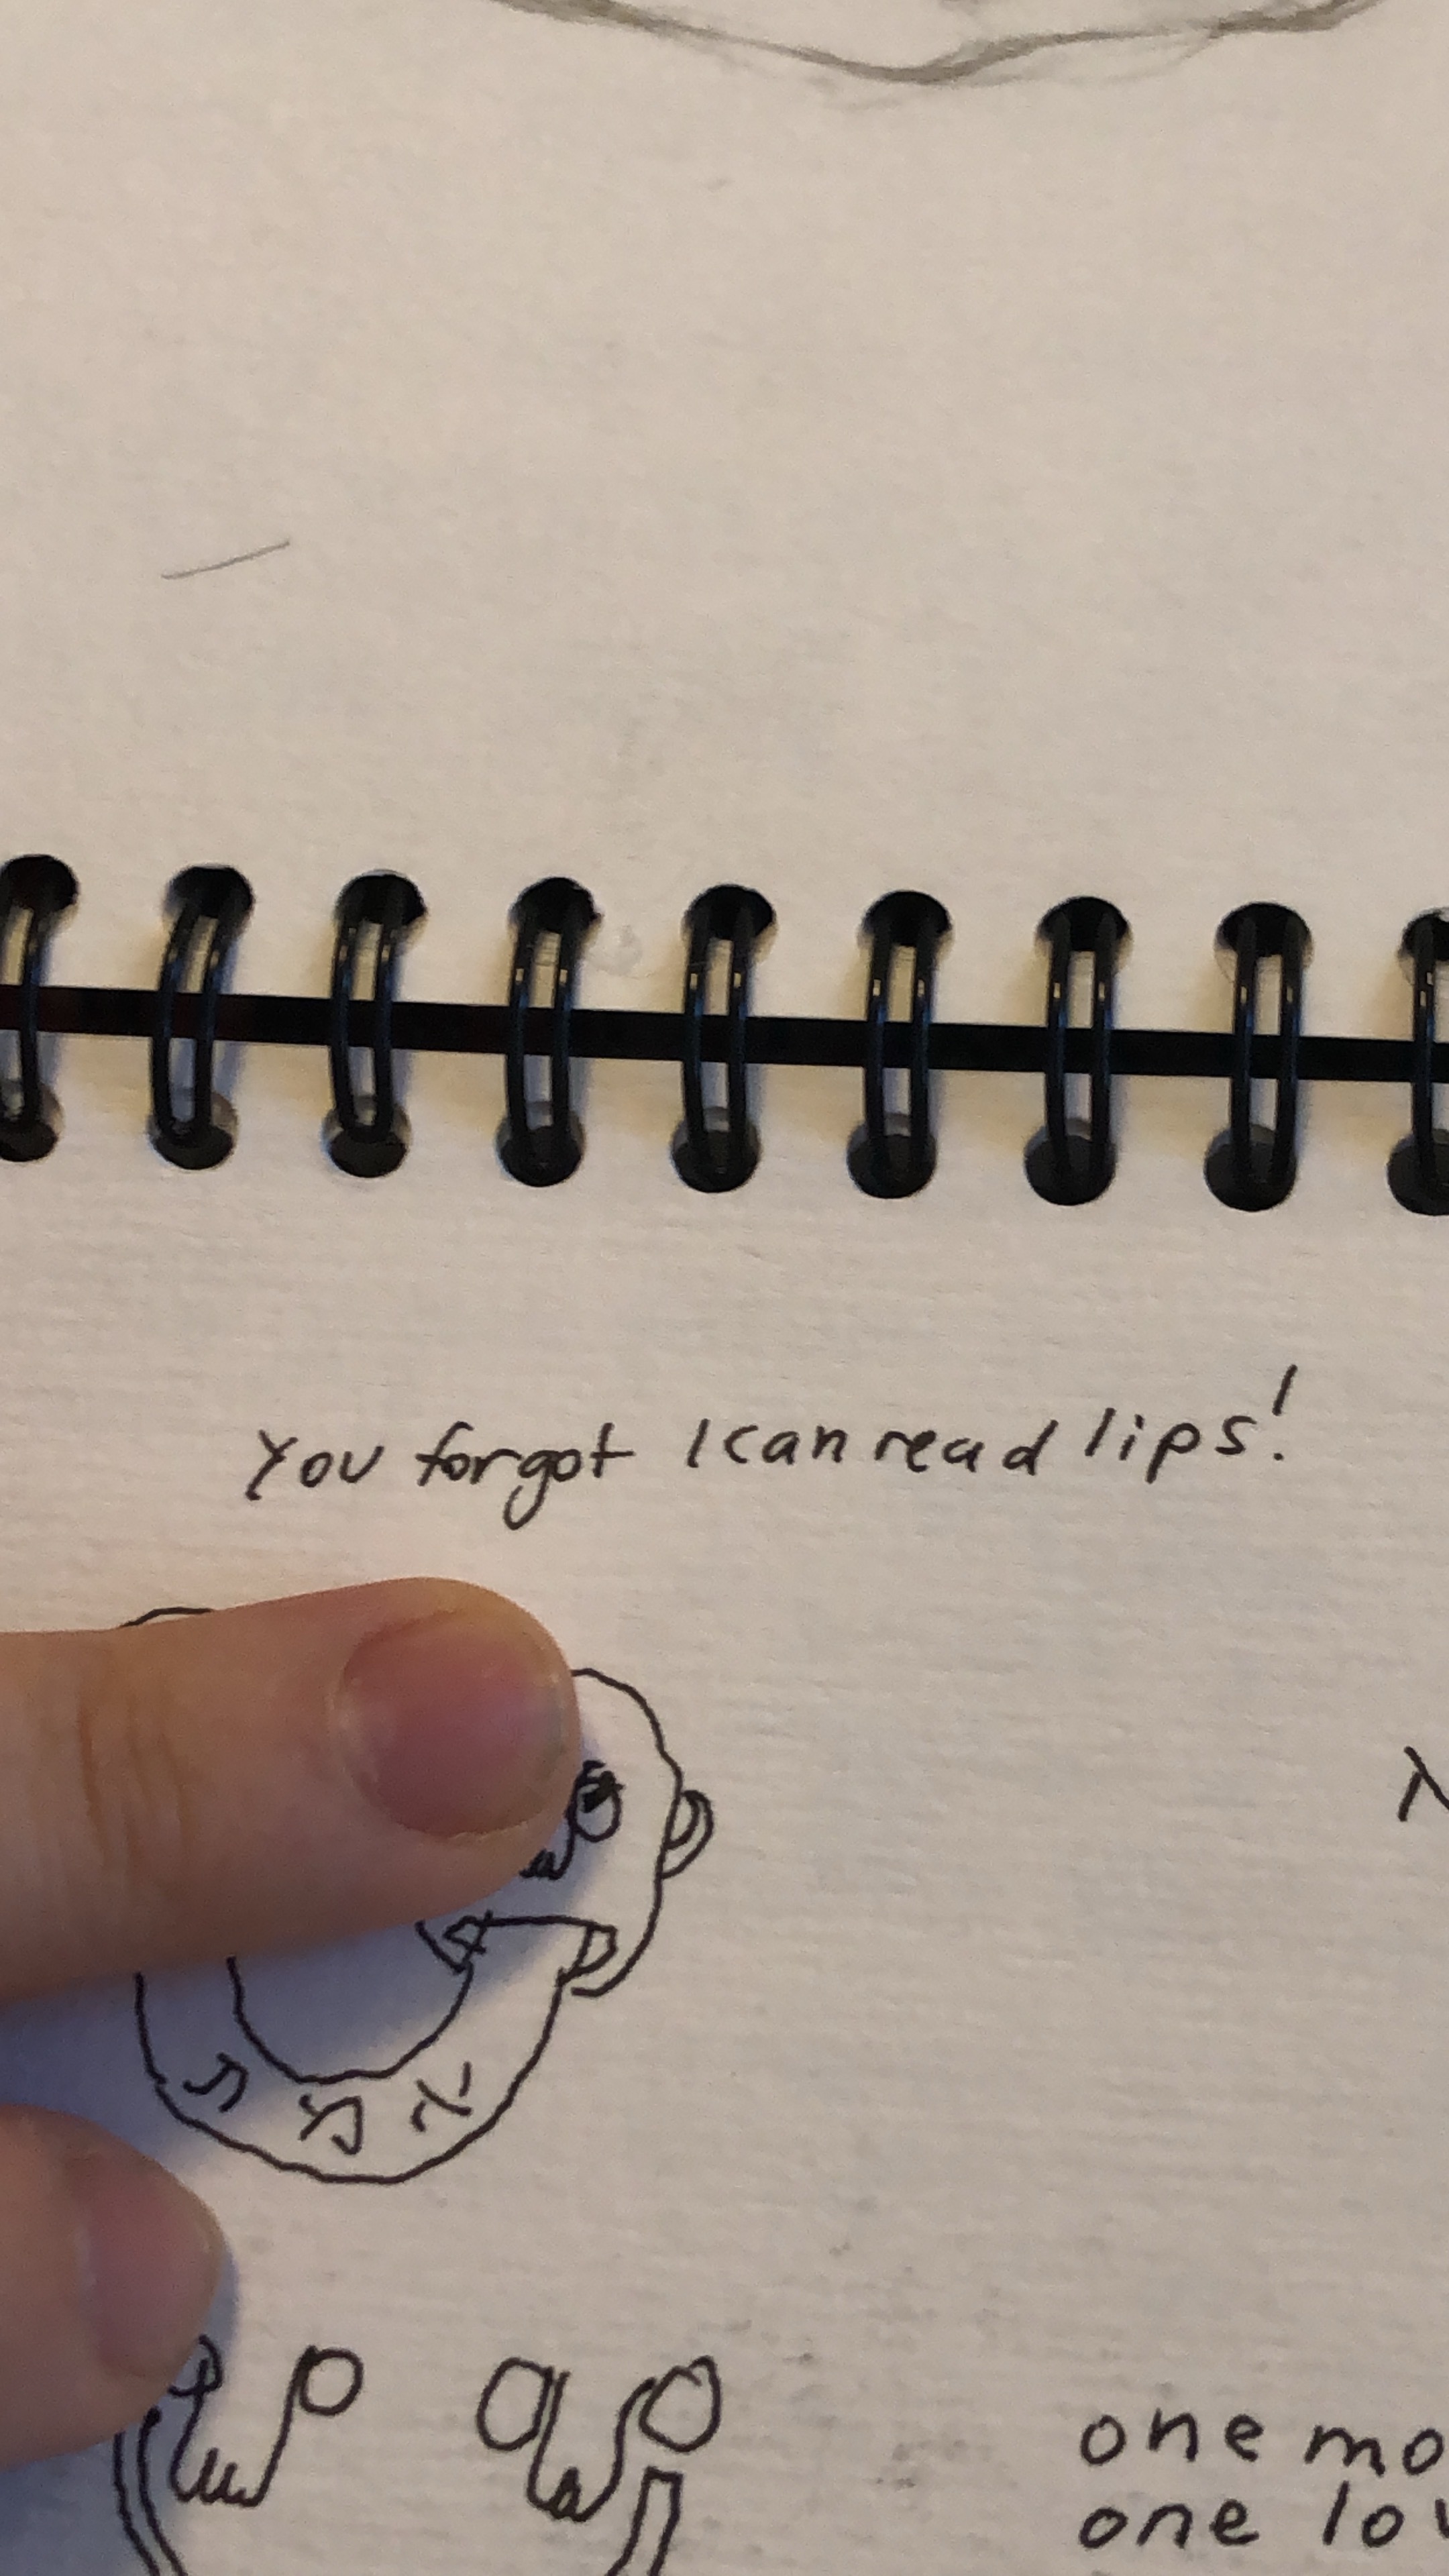 You forgot I can read lips!
one
one